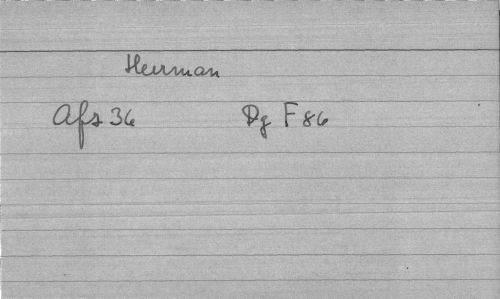 Herman
Afs 36 Dg F 86